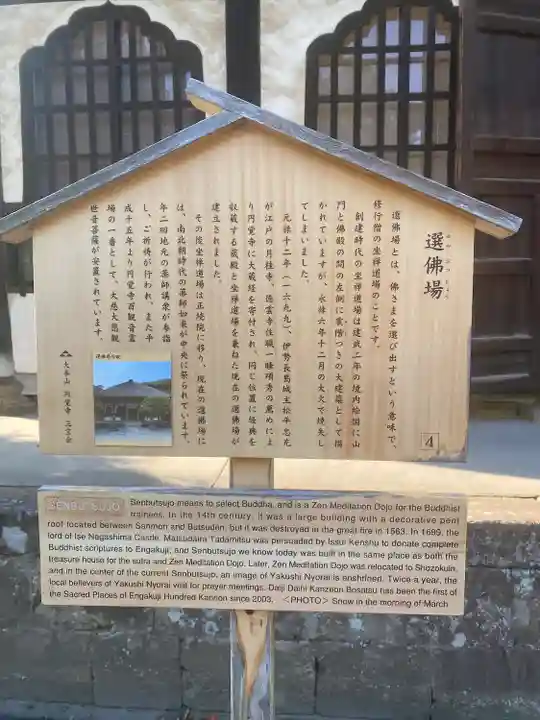 選佛場
せんぶつじょう
選佛場とは、佛さまを選び出すという意味で、
修行僧の坐禅道場のことです。
創建時代の坐禅道場は建武二年の境内絵図に山
門と佛殿の間の左側に裳階つきの大建築として描
かれていますが、永禄六年十二月の大火で焼失し
てしまいました。
元禄十二年(一六九九)、伊勢長島城主松平忠充
が江戸の月桂寺、徳雲寺住職一睡碩秀の薦めによ
り円覚寺に大蔵経を寄付され、同じ位置に経典を
収蔵する蔵殿と坐禅道場を兼ねた現在の選佛場が
建立されました。
その後坐禅道場は正続院に移り、現在の選佛場に
は、南北朝時代の薬師如来が中央に祭られています。
年二回地元の薬師講衆が参詣
し、ご祈祷が行われ、また平
成十五年より円覚寺百観音霊
場の一番として、大慈大悲観
世音菩薩が安置されています。
大本山 円覚寺
4
Senbutsujo means to select Buddha, and is a Zen Meditation Dojo for the Buddhist
trainees. In the 14th century, it was a large building with a decorative pent
roof located between Sanmon and Butsuden, but it was destroyed in the great fire in 1563. In 1699, the
lord of Ise Nagashima Castle, Matsudaira Tadamitsu was persuaded by Issui Kenshu to donate complete
Buddhist scriptures to Engakuji, and Senbutsujo we know today was built in the same place as both the
treasure house for the sutra and Zen Meditation Dojo. Later, Zen Meditation Dojo was relocated to Shozokuin,
and in the center of the current Senbutsujo, an image of Yakushi Nyorai is enshrined. Twice a year, the
local believers of Yakushi Nyorai visit for prayer meetings. Daiji Daihi Kanzeon Bosatsu has been the first of
the Sacred Places of Engakuji Hundred Kannon since 2003. <PHOTO> Snow in the morning of March